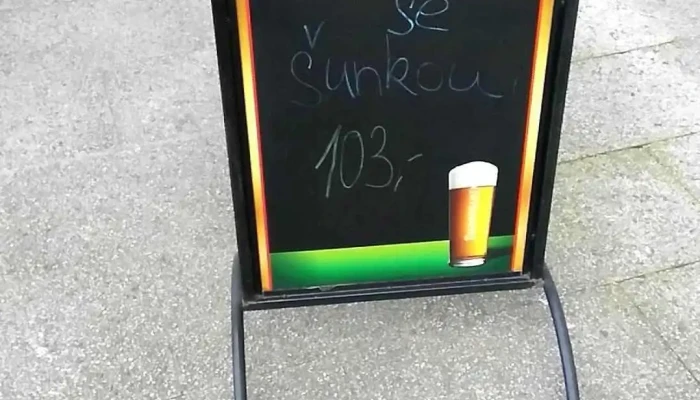 se
šunkou
103,-